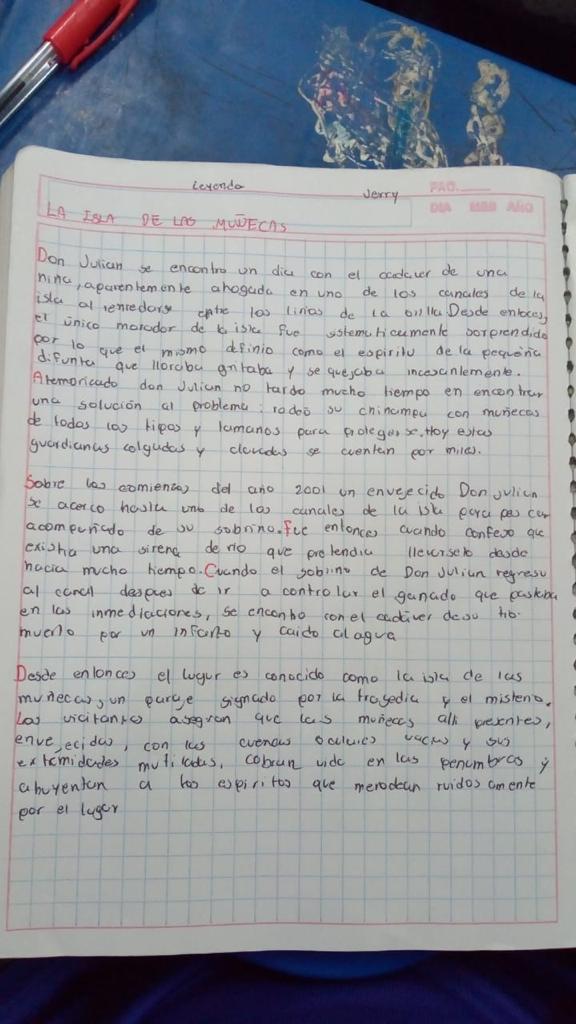 Leyenda
Jerry
PAG.
DIA MES AÑO
LA ISLA DE LAS MUÑECAS
Don Julian se encontro un dia con el cadaver de una
niña, aparentemente ahogada en uno de los canales de la
isla al enredarse entre los lirios de la orilla Desde entoces,
el único morador de la isla fue sistematicamente sorprendido
por lo que el mismo definio como el espiritu de la pequeña
difunta que lloraba gritaba y se quejaba incesantemente.
Atemoricado don Julian no tardo mucho tiempo en encontrar
una solución al problema: rodeo su chinampa con muñecas
de todos los tipos y tamanos para protegerse, Hoy estas
guardianas colgadas y clavadas se cuentan por miles.
Sobre los comienzos del año 2001 un envejecido Don Julian
se acerco hasta uno de los canales de la isla para pescar
acompañado de su sobrino. Fue entonces cuando confeso que
existia una sirena de rio que pretendia llevarselo desde
hacia mucho tiempo. Cuando el sobrino de Don Julian regreso
al canal despues de ir a controlar el ganado que pastaba
en las inmediaciones, se encontro con el cadaver de su tio
muerto por un infarto y caido al agua
Desde entonces el lugar es conocido como la isla de las
muñecas, un paraje signado por la tragedia y el misterio.
Los visitantes asegran que las muñecas alli presentes,
envejecidas, con las cuencas oculares vacias y sus
extemidades mutiladas, cobran vida en las penumbras y
ahuyentan a los espiritos que merodean ruidosamente
por el lugar